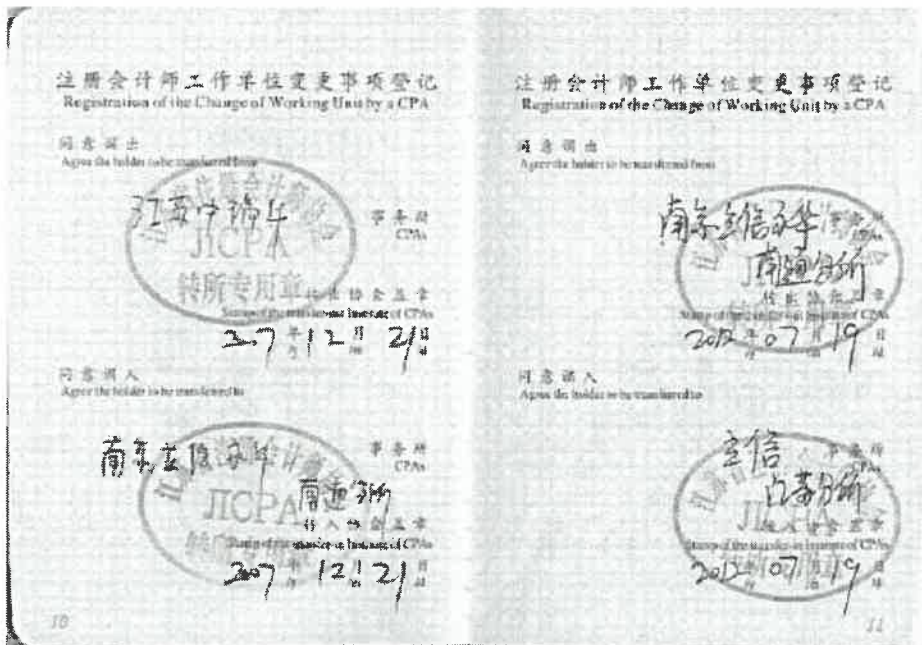 注册会计师工作单位变更事项登记
Registration of the Change of Working Unit by a CPA
同意调出
Agree the holder to be transferred from
江苏
事务所
CPAs
JICPA
转所专用章
转出协会盖章
Stamp of the transfer-out Institute of CPAs
2007年12月21日
同意调入
Agree the holder to be transferred to
南京立信永华
事务所
CPAs
南通分所
JICPA
转入协会盖章
Stamp of the transfer-in Institute of CPAs
2007年12月21日
10
注册会计师工作单位变更事项登记
Registration of the Change of Working Unit by a CPA
同意调出
Agree the holder to be transferred from
南京立信永华
事务所
CPAs
南通分所
转出协会盖章
Stamp of the transfer-out Institute of CPAs
2012年07月19日
同意调入
Agree the holder to be transferred to
立信
事务所
CPAs
江苏分所
转入协会盖章
Stamp of the transfer-in Institute of CPAs
2012年07月19日
11